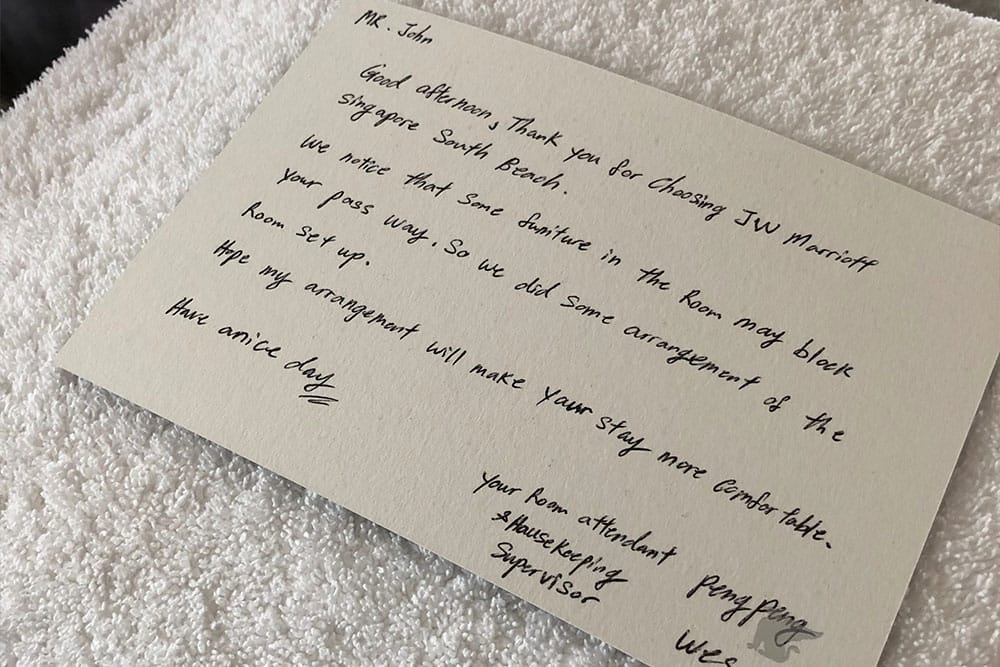 MR. John
Good afternoon, Thank you for Choosing JW Marriott
Singapore South Beach.
We notice that some funiture in the Room may block
your pass way. So we did some arrangement of the
Room set up.
Hope my arrangement will make your stay more comfortable.
Have a nice day
Your Room attendant Peng Peng
& Housekeeping
Supervisor